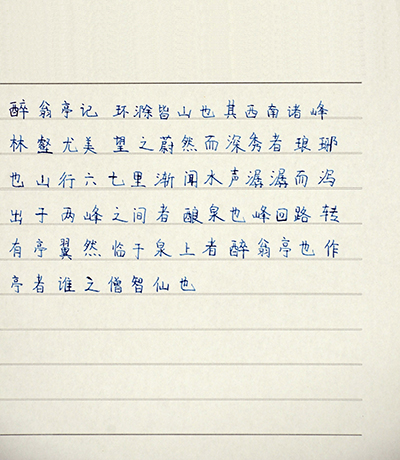 醉翁亭记 环滁皆山也其西南诸峰
林壑尤美 望之蔚然而深秀者琅琊
也山行六七里渐闻水声潺潺而泻
出于两峰之间者酿泉也峰回路转
有亭翼然临于泉上者醉翁亭也作
亭者谁之僧智仙也